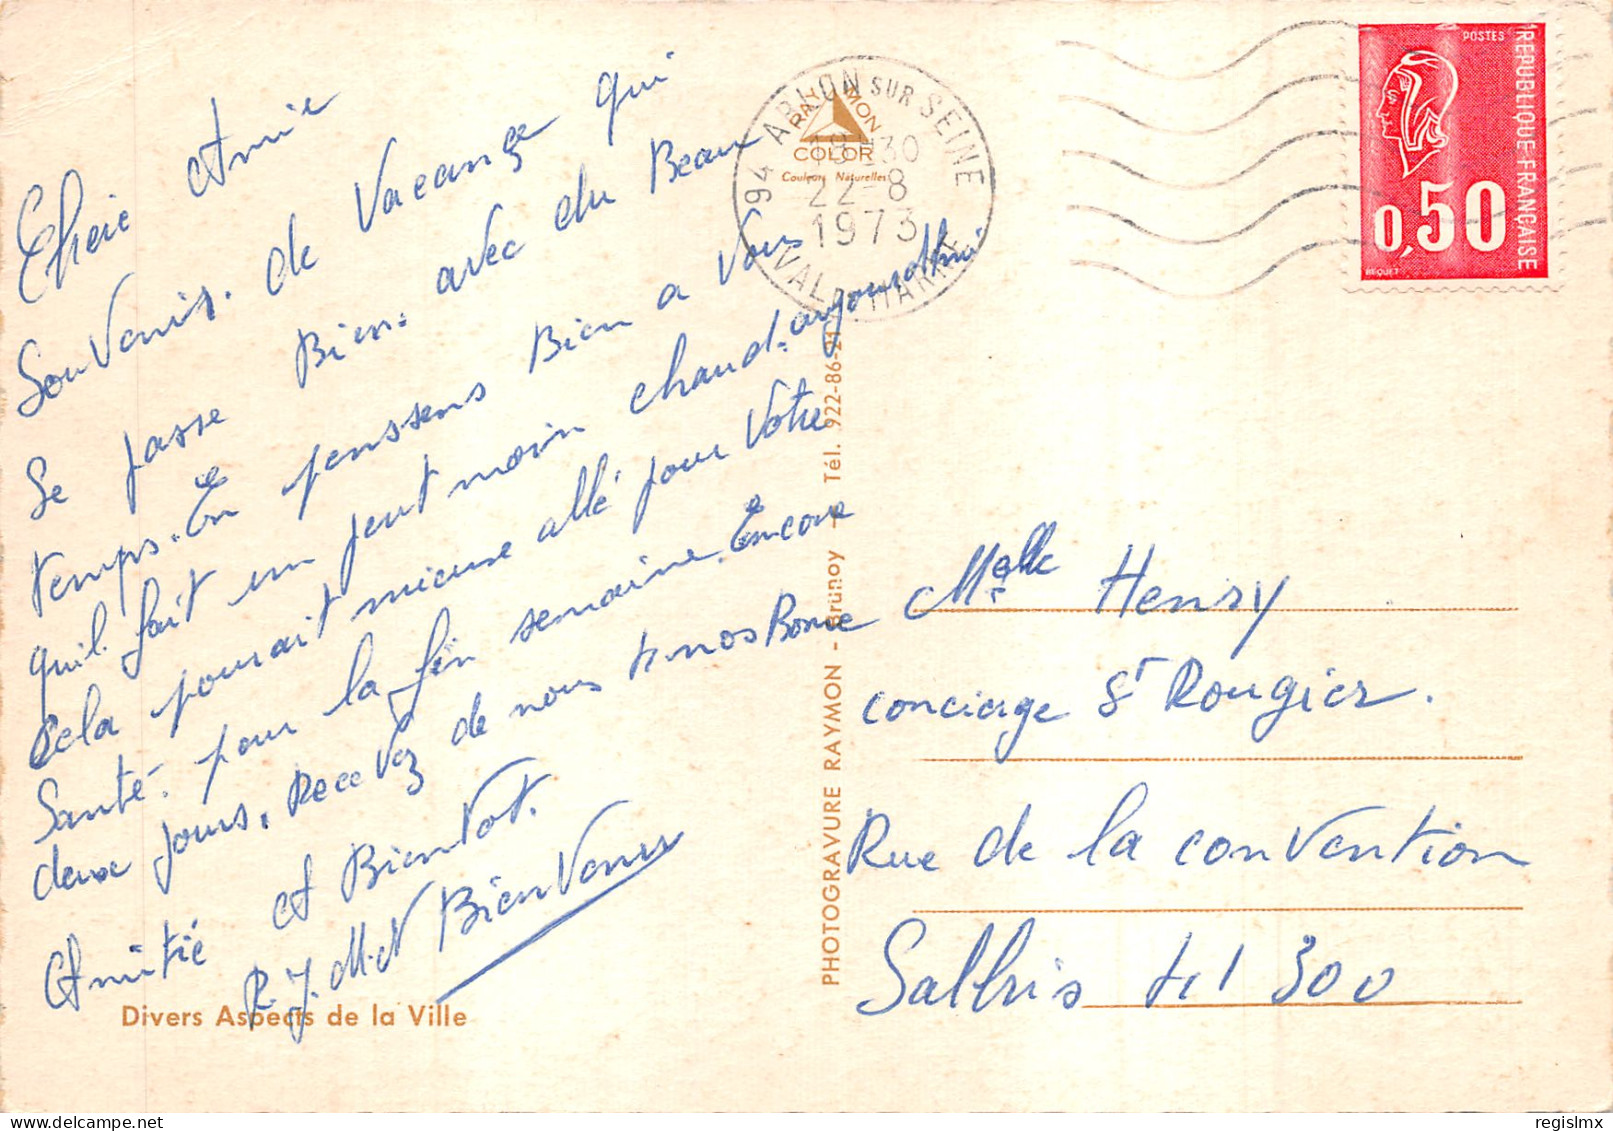 Cheie Amie
Souvenir. de Vacance qui
Se passe Bien. avec du Beaux
temps. En penssens Bien a Vous
quil fait un peut moin chaud. aujourdhui
Cela pourait mieux allé pour Votre
Santé. pour la fin semaine. Encore
deux jours. Recevez de nous 4 nos Bonne
Amitié et Bientot.
R. J. M. et Bienvenu
Divers Aspects de la Ville
PHOTOGRAVURE RAYMON - Brunoy - Tél. 922-86-21
RAYMON
COLOR
Couleurs Naturelles
94 ABLON SUR SEINE
22-8
1973
VAL DE MARNE
POSTES
REPUBLIQUE FRANÇAISE
0,50
BEQUET
Melle Henry
concierge St Rougier.
Rue de la convention
Salbris 41 300
www.delcampe.net
regislmx